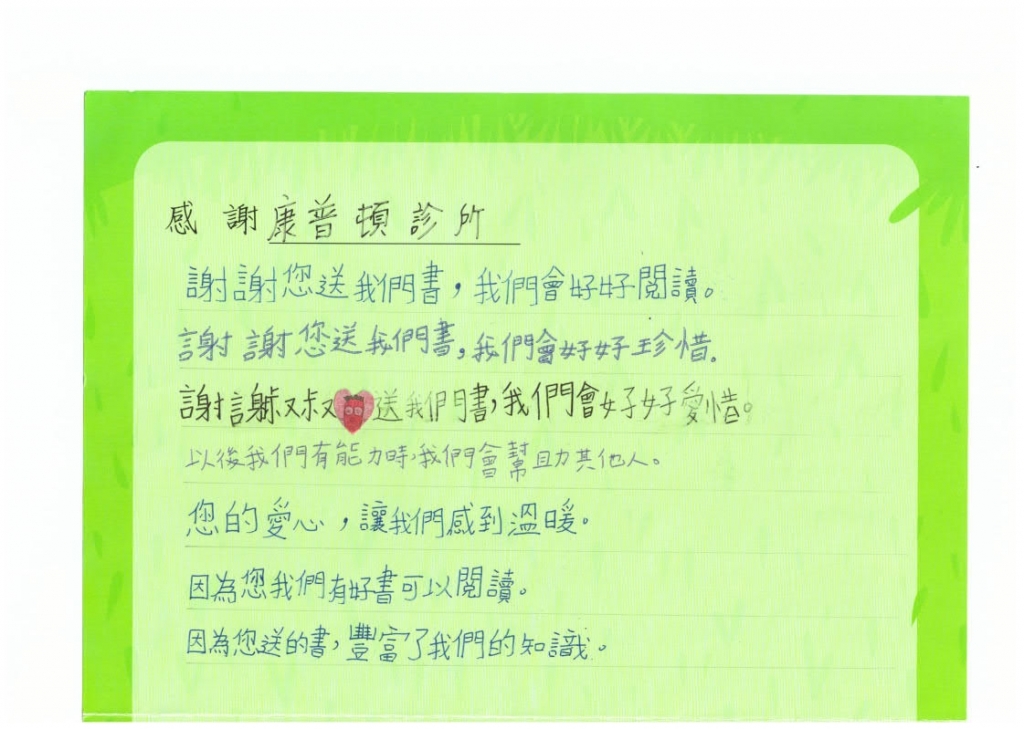 感謝康普頓診所
謝謝您送我們書，我們會好好閱讀。
謝謝您送我們書，我們會好好珍惜.
謝謝叔叔送我們書，我們會好好愛惜。
以後我們有能力時，我們會幫助其他人。
您的愛心，讓我們感到溫暖。
因為您我們有好書可以閱讀。
因為您送的書，豐富了我們的知識。